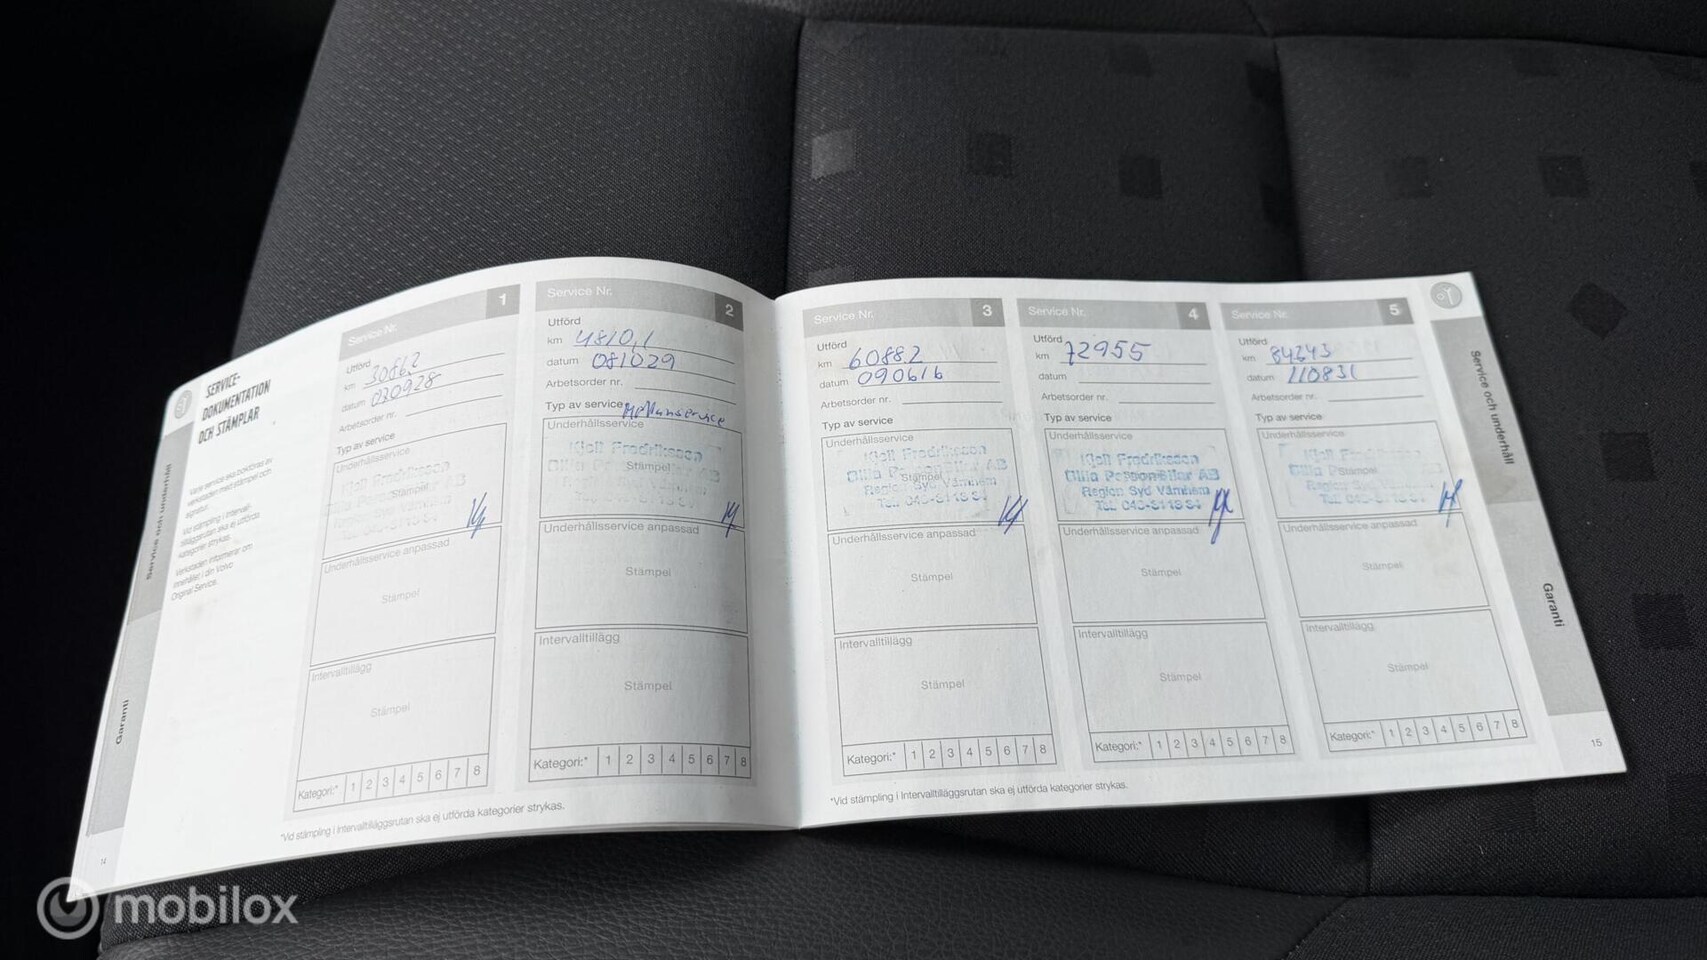 SERVICE-
DOKUMENTATION
OCH STÄMPLAR
Varje service ska bokföras av
verkstaden med stämpel och
signatur.
Vid stämpling i Interval-
tilläggsrutan ska ej utförda
kategorier strykas.
Verkstaden informerar om
innehållet i din Volvo
Original Service.
Service och underhåll
Garanti
14
Service Nr. 1
Utförd
km 30862
datum 070928
Arbetsorder nr.
Typ av service
Underhållsservice
Stämpel
Kjell Fredriksson
Underhållsservice anpassad
Stämpel
Intervalltillägg
Stämpel
Kategori:* 1 2 3 4 5 6 7 8
Service Nr. 2
Utförd
km 4810,1
datum 081029
Arbetsorder nr.
Typ av service Mellanservice
Underhållsservice
Kjell Fredriksson
Stämpel
Underhållsservice anpassad
Stämpel
Intervalltillägg
Stämpel
Kategori:* 1 2 3 4 5 6 7 8
*Vid stämpling i Intervalltilläggsrutan ska ej utförda kategorier strykas.
Service Nr. 3
Utförd
km 60882
datum 090616
Arbetsorder nr.
Typ av service
Underhållsservice
Kjell Fredriksson
Bilia Personbilar AB
Stämpel
Region Syd Värnhem
Underhållsservice anpassad
Stämpel
Intervalltillägg
Stämpel
Kategori:* 1 2 3 4 5 6 7 8
Service Nr. 4
Utförd
km 72955
datum
Arbetsorder nr.
Typ av service
Underhållsservice
Kjell Fredriksson
Bilia Personbilar AB
Region Syd Värnhem
Underhållsservice anpassad
Stämpel
Intervalltillägg
Stämpel
Kategori:* 1 2 3 4 5 6 7 8
Service Nr. 5
Utförd
km 84343
datum 110831
Arbetsorder nr.
Typ av service
Underhållsservice
Stämpel
Underhållsservice anpassad
Stämpel
Intervalltillägg
Stämpel
Kategori:* 1 2 3 4 5 6 7 8
*Vid stämpling i Intervalltilläggsrutan ska ej utförda kategorier strykas.
Service och underhåll
Garanti
15
mobilox